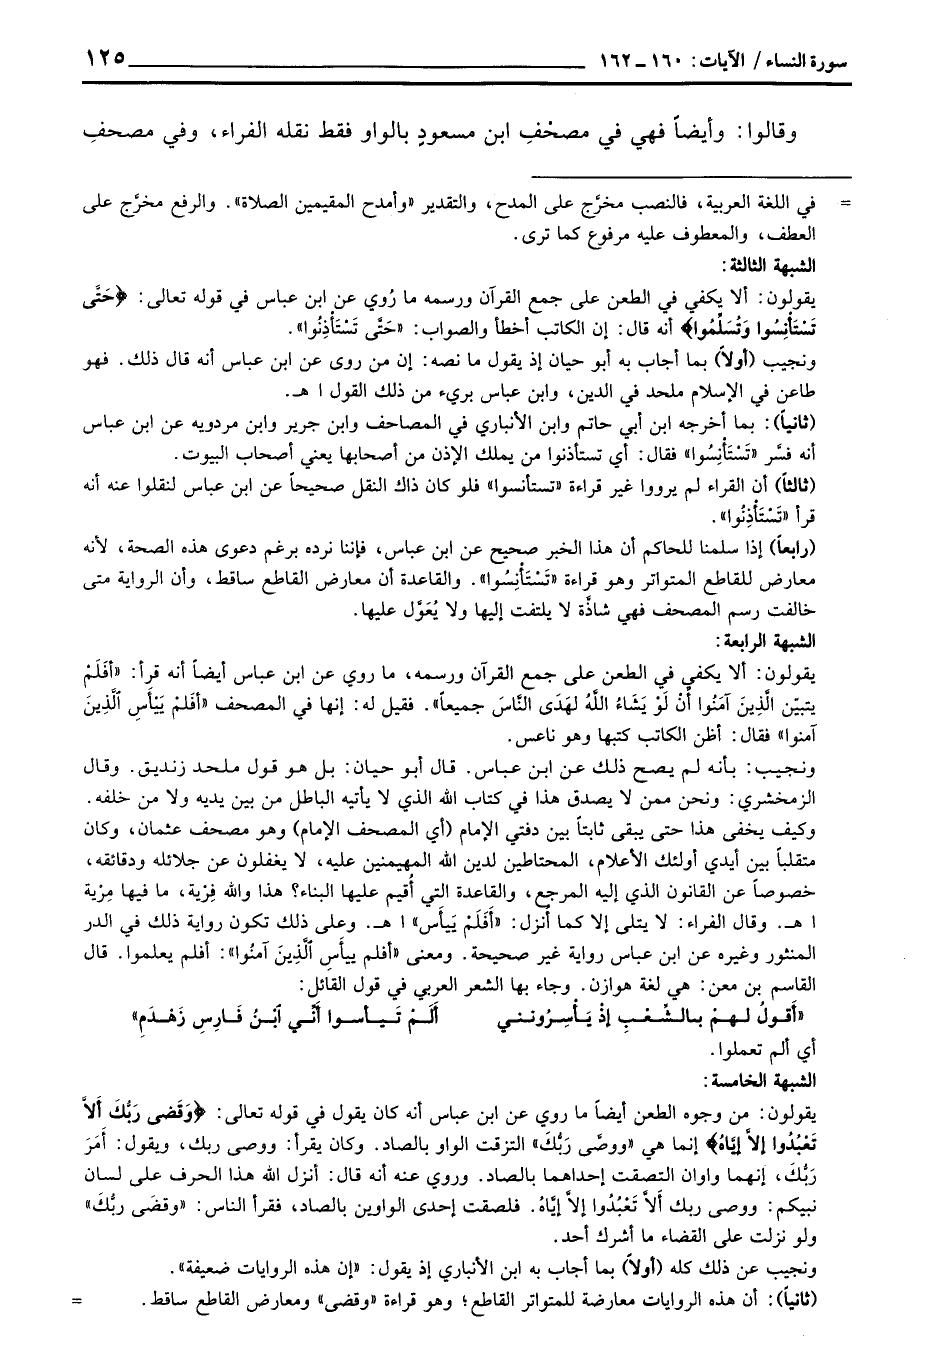 سورة النساء / الآيات: ١٦٠ ـ ١٦٢ ١٢٥
وقالوا: وأيضاً فهي في مصحْفِ ابن مسعودٍ بالواو فقط نقله الفراء، وفي مصحفِ
= في اللغة العربية، فالنصب مخرَّج على المدح، والتقدير «وأمدح المقيمين الصلاة». والرفع مخرَّج على
العطف، والمعطوف عليه مرفوع كما ترى.
الشبهة الثالثة:
يقولون: ألا يكفي في الطعن على جمع القرآن ورسمه ما رُوي عن ابن عباس في قوله تعالى: ﴿حَتَّى
تَسْتَأْنِسُوا وَتُسَلِّمُوا﴾ أنه قال: إن الكاتب أخطأ والصواب: «حَتَّى تَسْتَأْذِنُوا».
ونجيب (أولاً) بما أجاب به أبو حيان إذ يقول ما نصه: إن من روى عن ابن عباس أنه قال ذلك. فهو
طاعن في الإسلام ملحد في الدين، وابن عباس بريء من ذلك القول ا هـ.
(ثانياً): بما أخرجه ابن أبي حاتم وابن الأنباري في المصاحف وابن جرير وابن مردويه عن ابن عباس
أنه فسَّر «تَسْتَأْنِسُوا» فقال: أي تستأذنوا من يملك الإذن من أصحابها يعني أصحاب البيوت.
(ثالثاً) أن القراء لم يرووا غير قراءة «تستأنسوا» فلو كان ذاك النقل صحيحاً عن ابن عباس لنقلوا عنه أنه
قرأ «تَسْتَأْذِنُوا».
(رابعاً) إذا سلمنا للحاكم أن هذا الخبر صحيح عن ابن عباس، فإننا نرده برغم دعوى هذه الصحة، لأنه
معارض للقاطع المتواتر وهو قراءة «تَسْتَأْنِسُوا». والقاعدة أن معارض القاطع ساقط، وأن الرواية متى
خالفت رسم المصحف فهي شاذَّة لا يلتفت إليها ولا يُعَوَّل عليها.
الشبهة الرابعة:
يقولون: ألا يكفي في الطعن على جمع القرآن ورسمه، ما روي عن ابن عباس أيضاً أنه قرأ: «أفَلَمْ
يتبيّن الَّذِينَ آمَنُوا أَنْ لَوْ يَشَاءُ اللَّهُ لهَدَى النَّاسَ جميعاً». فقيل له: إنها في المصحف «أفَلَمْ يَيْأَسِ ٱلَّذِينَ
آمنوا» فقال: أظن الكاتب كتبها وهو ناعس.
ونجيب: بأنه لم يصح ذلك عن ابن عباس. قال أبو حيان: بل هو قول ملحد زنديق. وقال
الزمخشري: ونحن ممن لا يصدق هذا في كتاب الله الذي لا يأتيه الباطل من بين يديه ولا من خلفه.
وكيف يخفى هذا حتى يبقى ثابتاً بين دفتي الإمام (أي المصحف الإمام) وهو مصحف عثمان، وكان
متقلباً بين أيدي أولئك الأعلام، المحتاطين لدين الله المهيمنين عليه، لا يغفلون عن جلائله ودقائقه،
خصوصاً عن القانون الذي إليه المرجع، والقاعدة التي أُقيم عليها البناء؟ هذا والله فِرْية، ما فيها مِرْية
ا هـ. وقال الفراء: لا يتلى إلا كما أُنزل: «أَفَلَمْ يَيأَس» ا هـ. وعلى ذلك تكون رواية ذلك في الدر
المنثور وغيره عن ابن عباس رواية غير صحيحة. ومعنى «أفلم ييأسِ ٱلَّذِينَ آمنُوا»: أفلم يعلموا. قال
القاسم بن معن: هي لغة هوازن. وجاء بها الشعر العربي في قول القائل:
«أَقولُ لهمْ بالشِّعْبِ إذْ يَأْسِرُونني أَلَمْ تَيأسوا أنِّي ٱبْنُ فَارِسِ زَهْدَمِ»
أي ألم تعملوا.
الشبهة الخامسة:
يقولون: من وجوه الطعن أيضاً ما روي عن ابن عباس أنه كان يقول في قوله تعالى: ﴿وَقَضى رَبُّكَ أَلاَّ
تَعْبُدُوا إلاَّ إيَّاهُ﴾ إنما هي «ووصَّى رَبُّكَ» التزقت الواو بالصاد. وكان يقرأ: ووصى ربك، ويقول: أمَرَ
رَبُّكَ، إنهما واوان التصقت إحداهما بالصاد. وروي عنه أنه قال: أنزل الله هذا الحرف على لسان
نبيكم: ووصى ربك أَلاَّ تَعْبُدُوا إلاَّ إيَّاهُ. فلصقت إحدى الواوين بالصاد، فقرأ الناس: «وقضَى ربُّكَ»
ولو نزلت على القضاء ما أشرك أحد.
ونجيب عن ذلك كله (أولاً) بما أجاب به ابن الأنباري إذ يقول: «إن هذه الروايات ضعيفة».
(ثانياً): أن هذه الروايات معارضة للمتواتر القاطع؛ وهو قراءة «وقضى» ومعارض القاطع ساقط. =